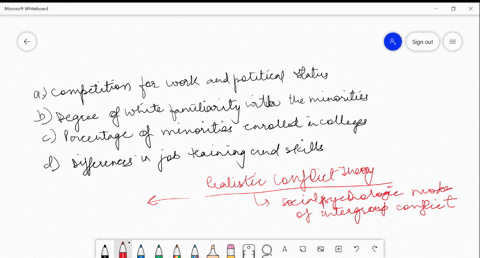 Microsoft Whiteboard
Sign out
a) Competition for work and political status
b) Degree of white familiarity with the minorities
c) Percentage of minorities enrolled in colleges
d) Differences in job training and skills
Realistic Conflict Theory
social psychologic model
of intergroup conflict